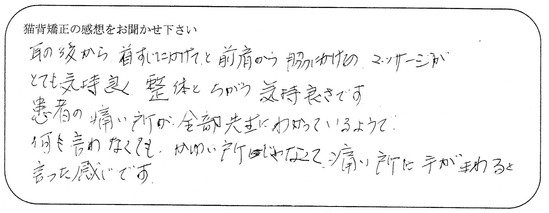 猫背矯正の感想をお聞かせ下さい
耳の後から首すじにかけてと前肩から胸にかけてのマッサージが
とても気持良く整体とちがう気持良さです
患者の痛い所が全部先生にわかっているようで
何も言わなくても、かゆい所じゃなくて、痛い所に手がまわると
言った感じです